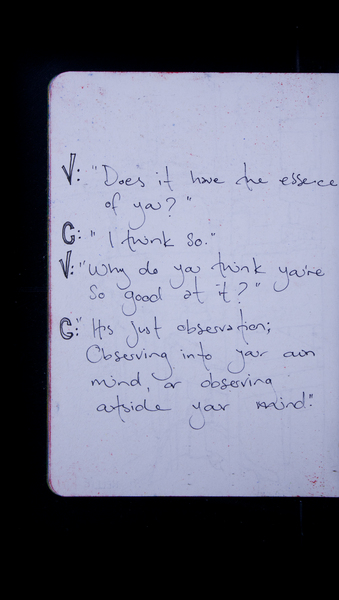 V: "Does it have the essence
of you?"
C: "I think so."
V: "Why do you think you're
so good at it?"
C: "It's just observation;
Observing into your own
mind, or observing
outside your mind."